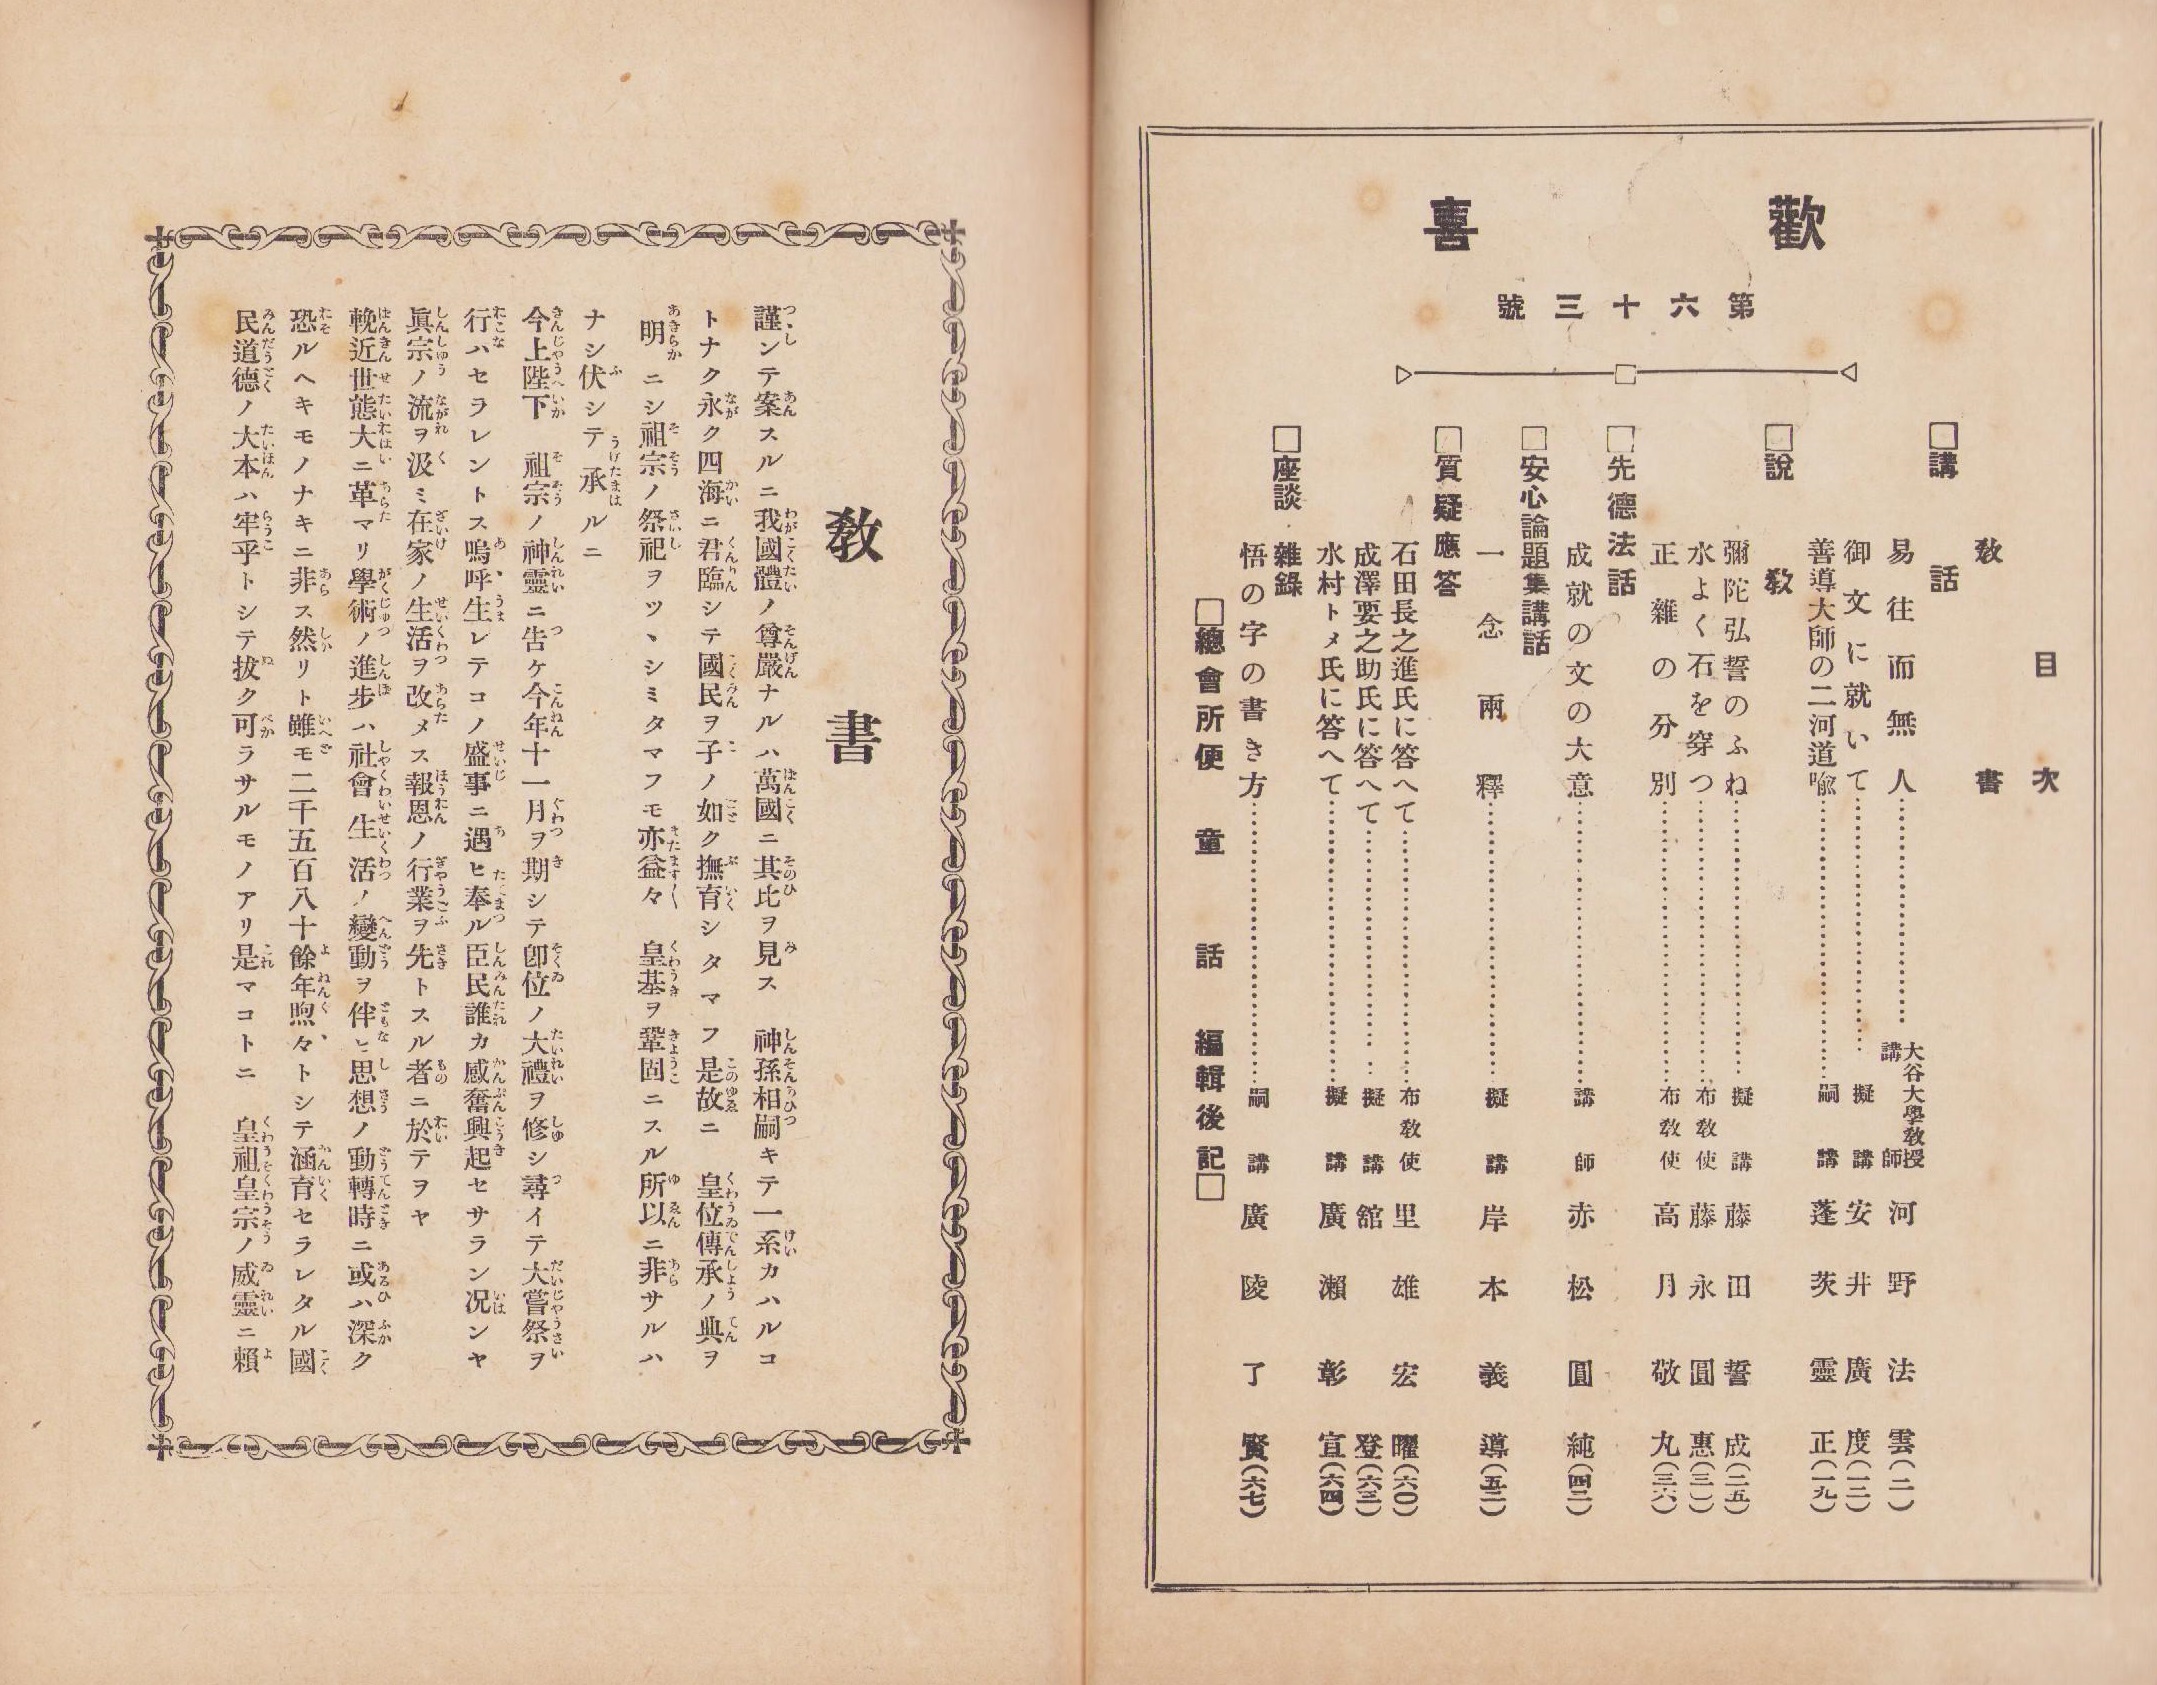 歡喜
第六十三號
目次
敎書
□講話
易往而無人……大谷大學敎授 講師 河野法雲(二)
御文に就いて……擬講 安井廣度(一二)
善導大師の二河道喩……嗣講 蓬茨靈正(一九)
□說敎
彌陀弘誓のふね……擬講 藤田誓成(二五)
水よく石を穿つ……布敎使 藤永圓惠(三一)
正雜の分別……布敎使 高月敬丸(三六)
□先德法話
成就の文の大意……講師 赤松圓純(四二)
□安心論題集講話
一念兩釋……擬講 岸本義導(五二)
□質疑應答
石田長之進氏に答へて……布敎使 里雄宏曜(六〇)
成澤要之助氏に答へて……擬講 舘登(六三)
水村トメ氏に答へて……擬講 廣瀨彰宣(六四)
□座談 雜錄
悟の字の書き方……嗣講 廣陵了賢(六七)
□總會所便 童話 編輯後記□
敎書
謹ンテ案スルニ我國體ノ尊嚴ナルハ萬國ニ其比ヲ見ス 神孫相嗣キテ一系カハルコ
トナク永ク四海ニ君臨シテ國民ヲ子ノ如ク撫育シタマフ是故ニ 皇位傳承ノ典ヲ
明ニシ祖宗ノ祭祀ヲツヽシミタマフモ亦益々 皇基ヲ鞏固ニスル所以ニ非サルハ
ナシ伏シテ承ルニ
今上陛下 祖宗ノ神靈ニ告ケ今年十一月ヲ期シテ卽位ノ大禮ヲ修シ尋イテ大嘗祭ヲ
行ハセラレントス嗚呼生レテコノ盛事ニ遇ヒ奉ル臣民誰カ感奮興起セサラン況ンヤ
眞宗ノ流ヲ汲ミ在家ノ生活ヲ改メス報恩ノ行業ヲ先トスル者ニ於テヲヤ
輓近世態大ニ革マリ學術ノ進步ハ社會生活ノ變動ヲ伴ヒ思想ノ動轉時ニ或ハ深ク
恐ルヘキモノナキニ非ス然リト雖モ二千五百八十餘年煦々トシテ涵育セラレタル國
民道德ノ大本ハ牢乎トシテ拔ク可ラサルモノアリ是マコトニ 皇祖皇宗ノ威靈ニ賴